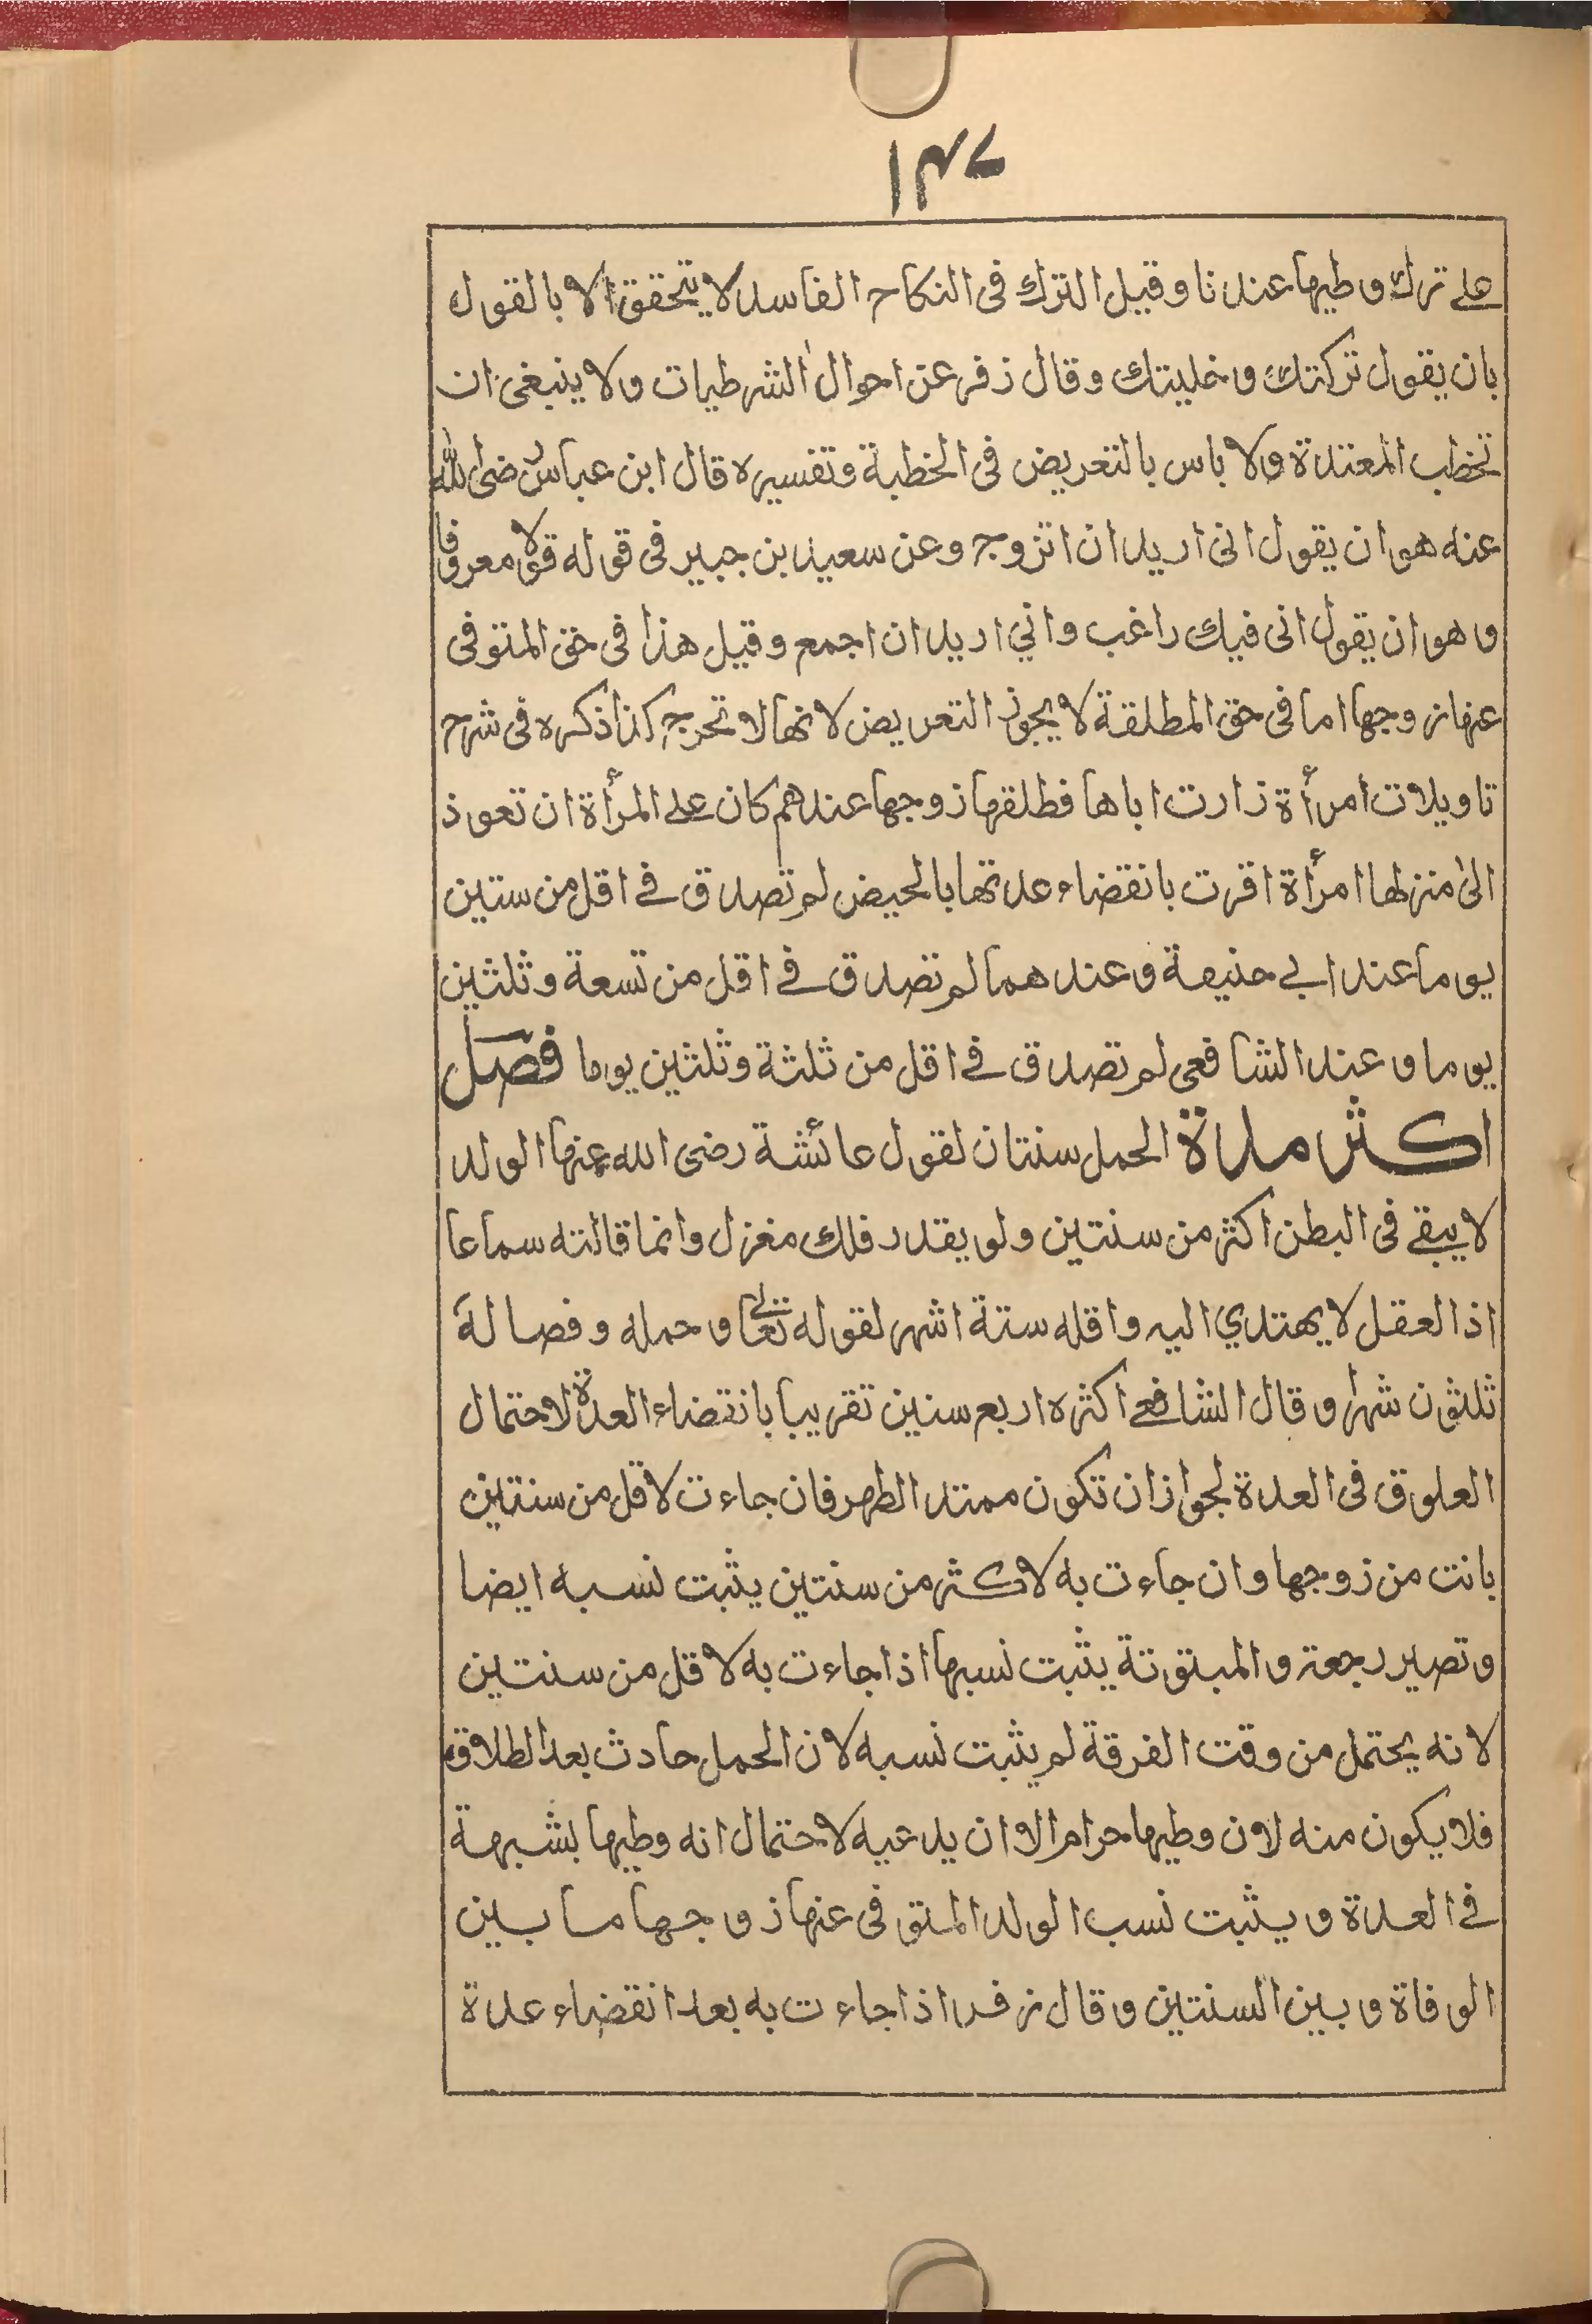 ١٣٧
على ترك وطيها عندنا وقيل الترك فى النكاح الفاسد لا يتحقق الا بالقول
بان يقول تركتك وخليتك وقال زفر عن احوال الشرطيات ولا ينبغى ان
تخطب المعتدة ولا باس بالتعريض فى الخطبة وتفسيره قال ابن عباس رضى الله
عنه هو ان يقول انى اريد ان اتزوج وعن سعيد بن جبير فى قوله قولا معروفا
وهو ان يقول انى فيك راغب واني اريد ان اجمع وقيل هذا فى حق المتوفى
عنها زوجها اما فى حق المطلقة لا يجوز التعريض لانها لا تخرج كذا ذكره فى شرح
تاويلات امرأة زارت اباها فطلقها زوجها عندهم كان على المرأة ان تعوذ
الى منزلها امرأة اقرت بانقضاء عدتها بالحيض لم تصدق في اقل من ستين
يوما عند ابي حنيفة وعندهما لم تصدق في اقل من تسعة وثلثين
يوما وعند الشافعى لم تصدق في اقل من ثلثة وثلثين يوما فصل
اكثر مدة الحمل سنتان لقول عائشة رضى الله عنها الولد
لا يبقى فى البطن اكثر من سنتين ولو بقدر فلك مغزل وانما قالته سماعا
اذ العقل لا يهتدي اليه واقله ستة اشهر لقوله تعالى وحمله وفصاله
ثلثون شهرا وقال الشافعي اكثره اربع سنين تقريبا بانقضاء العدة لاحتمال
العلوق فى العدة لجواز ان تكون ممتد الطهر فان جاءت لاقل من سنتين
بانت من زوجها وان جاءت به لاكثر من سنتين يثبت نسبه ايضا
وتصير رجعة والمبتوتة يثبت نسبها اذا جاءت به لاقل من سنتين
لانه يحتمل من وقت الفرقة لم يثبت نسبه لان الحمل حادث بعد الطلاق
فلا يكون منه لان وطيها حرام الا ان يدعيه لاحتمال انه وطيها بشبهة
في العدة ويثبت نسب الولد المتوفى عنها زوجها ما بين
الوفاة وبين السنتين وقال زفر اذا جاءت به بعد انقضاء عدة